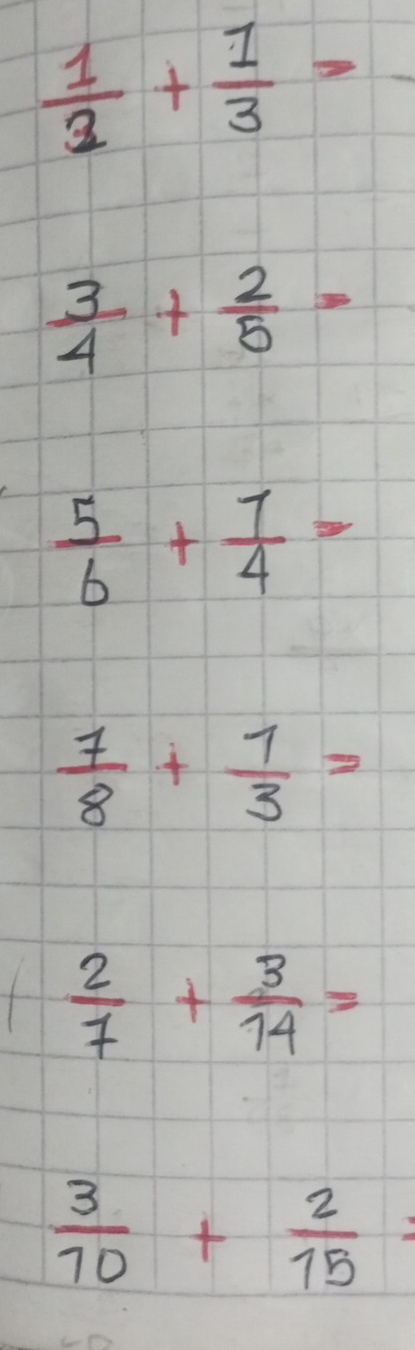 1/2 + 1/3 =
3/4 + 2/5 =
5/6 + 1/4 =
7/8 + 1/3 =
2/7 + 3/14 =
3/10 + 2/15 =